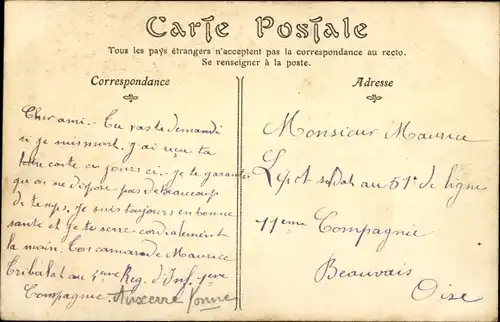 Carte Postale
Tous les pays étrangers n'acceptent pas la correspondance au recto.
Se renseigner à la poste.
Correspondance
Cher ami. Tu vas te demandé
si je suis mort. j'ai reçu ta
carte ces jours ci. je te garantie
qu on ne dispose pas de beaucoup
de temps. Je suis toujours en bonne
santé et je te serre cordialement
la main. Ton camarade Maurice
Tribalat au 4eme Reg. d'Inf. 1ere
Compagnie. Auxerre Yonne
Adresse
Monsieur Maurice
soldat au 51e de ligne
11eme Compagnie
Beauvais
Oise